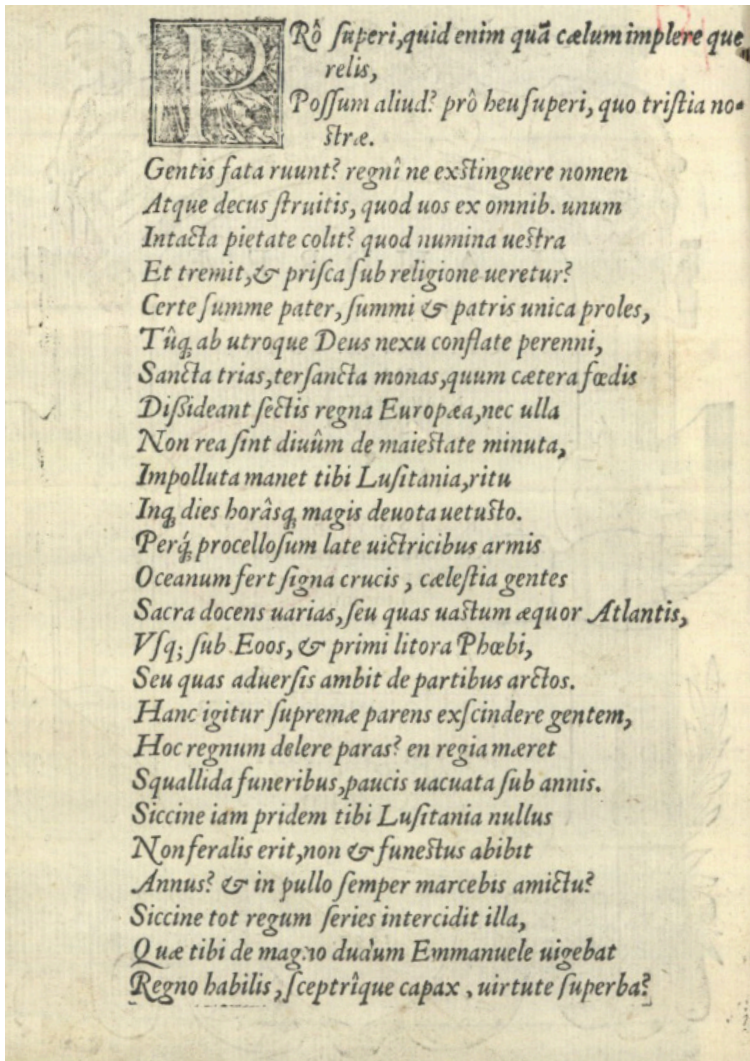 PRô ſuperi, quid enim quā cælum implere que
relis,
Poſſum aliud? prô heu ſuperi, quo triſtia no-
ſtræ.
Gentis fata ruunt? regnî ne exſtinguere nomen
Atque decus ſtruitis, quod uos ex omnib. unum
Intacta pietate colit? quod numina ueſtra
Et tremit, & priſca ſub religione ueretur?
Certe ſumme pater, ſummi & patris unica proles,
Tûq́; ab utroque Deus nexu conflate perenni,
Sancta trias, ter ſancta monas, quum cætera fœdis
Diſſideant ſectis regna Europæa, nec ulla
Non rea ſint diuûm de maieſtate minuta,
Impolluta manet tibi Luſitania, ritu
Inq́; dies horâsq́; magis deuota uetuſto.
Perq́; procelloſum late uictricibus armis
Oceanum fert ſigna crucis, cæleſtia gentes
Sacra docens uarias, ſeu quas uaſtum æquor Atlantis,
Vſq; ſub Eoos, & primi litora Phœbi,
Seu quas aduerſis ambit de partibus arctos.
Hanc igitur ſupremæ parens exſcindere gentem,
Hoc regnum delere paras? en regia mæret
Squallida funeribus, paucis uacuata ſub annis.
Siccine iam pridem tibi Luſitania nullus
Non feralis erit, non & funeſtus abibit
Annus? & in pullo ſemper marcebis amictu?
Siccine tot regum ſeries intercidit illa,
Quæ tibi de magno dudum Emmanuele uigebat
Regno habilis, ſceptrîque capax, uirtute ſuperba?